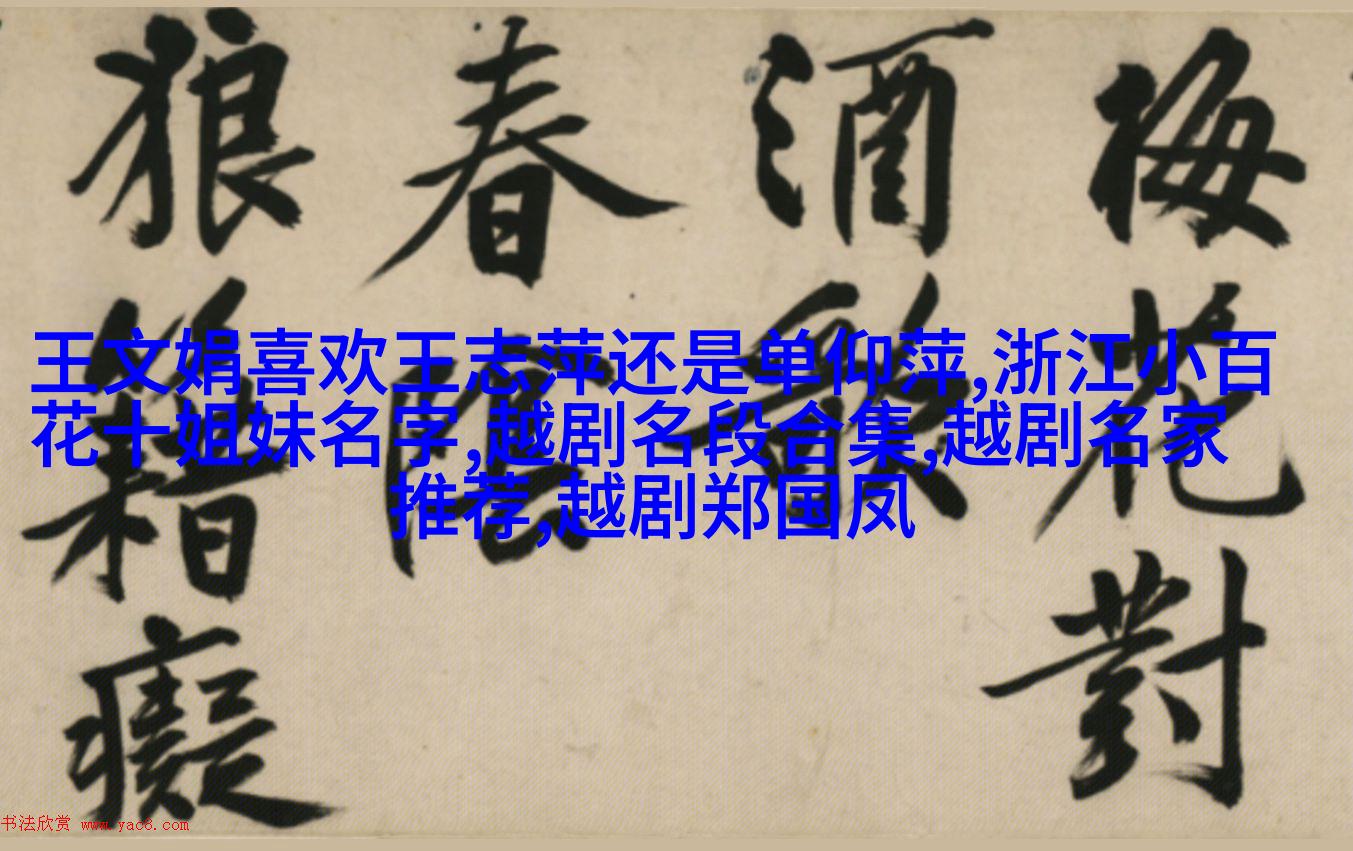 梅花對
酒
春
狼籍癡
王文娟喜欢王志萍还是单仰萍,浙江小百
花十姐妹名字,越剧名段合集,越剧名家
推荐,越剧郑国凤
书法欣赏 www.yac8.com